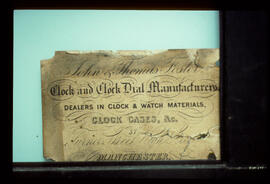 John & Thomas Foster
Clock and Clock Dial Manufacturers,
DEALERS IN CLOCK & WATCH MATERIALS,
CLOCK CASES, &c.
Street
MANCHESTER.